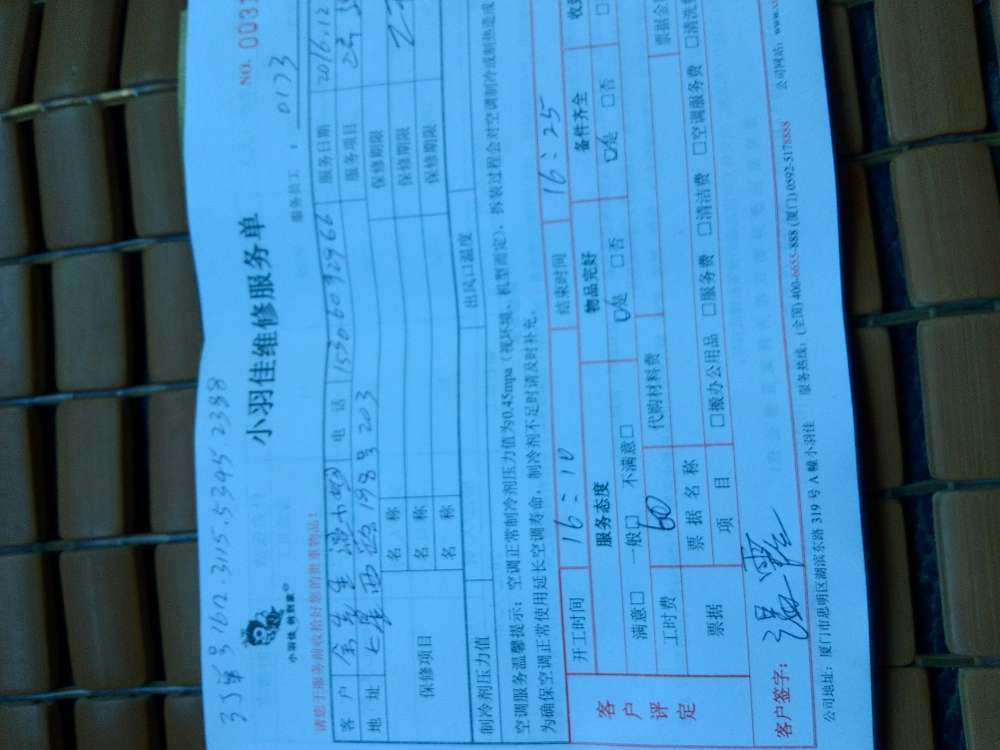 35单号1612.3115.5345 2388
小羽佳 例到家
小羽佳维修服务单
NO. 0031
服务员工： 0173
请您于服务前收拾好您的贵重物品！
客 户 余先生 电 话 15060992966 服务日期 2016.12
地 址 七星西路198号203 服务项目
保修项目
名 称 保修期限
名 称 保修期限
名 称 保修期限
制冷剂压力值 出风口温度
空调服务温馨提示：空调正常制冷剂压力值为0.45mpa（视环境、机型而定），拆装过程会对空调制冷或制热造成
为确保空调正常使用延长空调寿命，制冷剂不足时请及时补充。
客户评定
开工时间 16：10 结束时间 16：25
服务态度 物品完好 备件齐全 收到
满意□ 一般□ 不满意□ ☑是 □否 ☑是 □否 □
工时费 60 代购材料费 票据金
票据 票据名称
项目 □搬办公用品 □服务费 □清洁费 □空调服务费 □清洗
客户签字：
公司地址：厦门市思明区湖滨东路 319 号 A 幢小羽佳 服务热线：(全国) 400-6655-888 (厦门) 0592-5178888 公司网站：www.